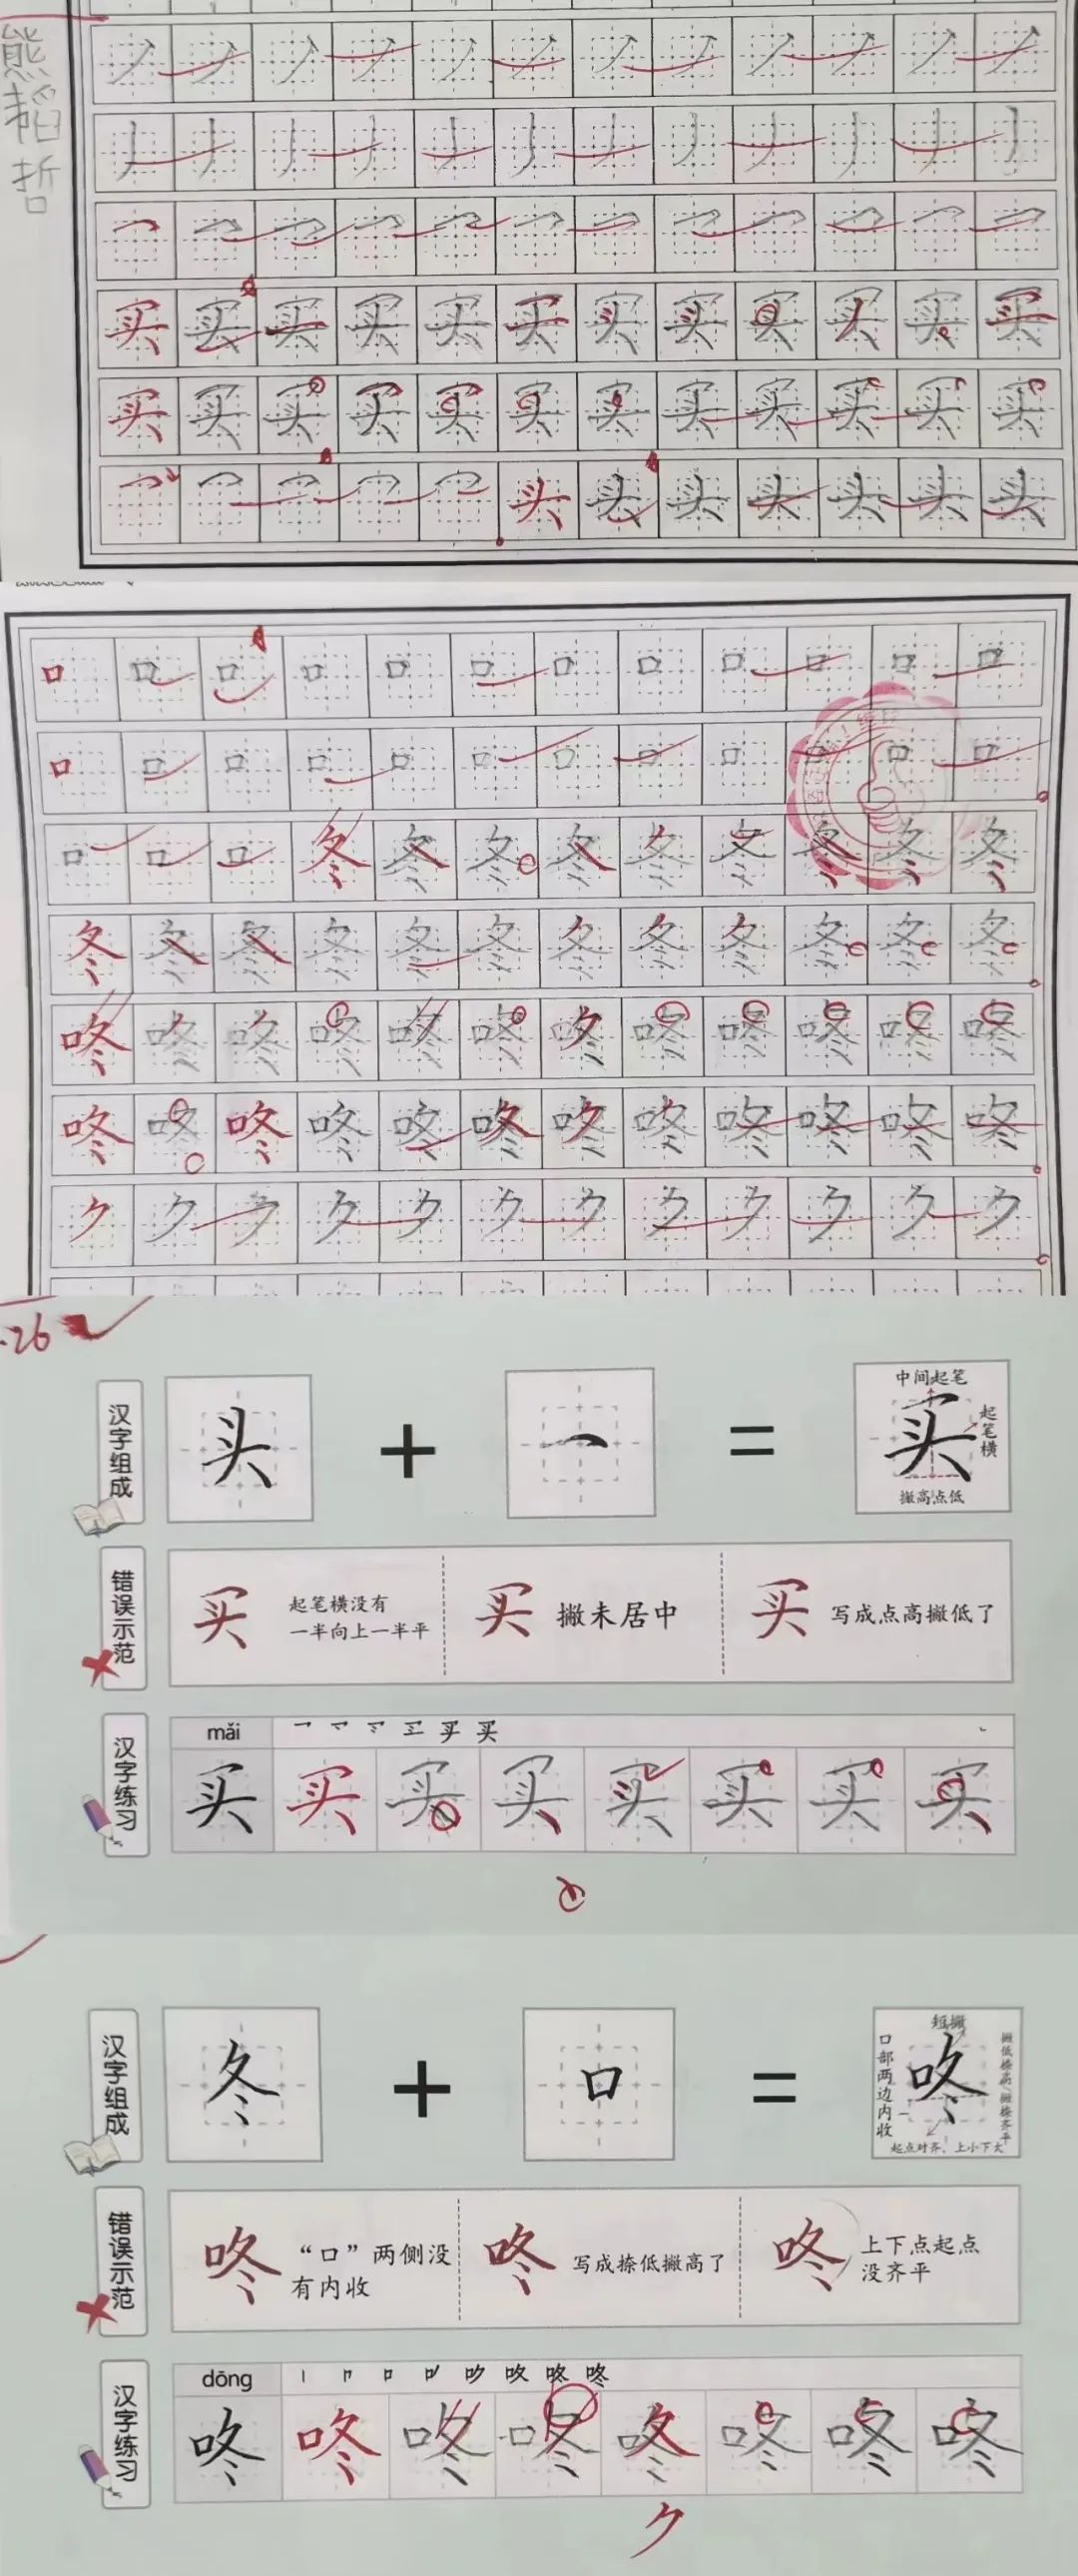 熊韬哲
买 买 买 买 买 买 买 买 买 买 买 买
买 买 买 买 买 买 买 买 买 买 买 买
头 头 头 头 头 头 头
口 口 口 口 口 口 口 口 口 口 口 口
口 口 口 口 口 口 口 口 口 口 口 口
口 口 口 冬 冬 冬 冬 冬 冬 冬 冬 冬
冬 冬 冬 冬 冬 冬 冬 冬 冬 冬 冬 冬
咚 咚 咚 咚 咚 咚 咚 咚 咚 咚 咚 咚
咚 咚 咚 咚 咚 咚 咚 咚 咚 咚 咚 咚
.26
汉字组成
头 + 乛 = 买
中间起笔
起笔横
撇高点低
错误示范
买 起笔横没有
一半向上一半平
买 撇未居中
买 写成点高撇低了
汉字练习
mǎi
买 买 买 买 买 买 买 买
汉字组成
冬 + 口 = 咚
短撇
口部两边内收
撇低捺高 撇捺齐平
起点对齐、上小下大
错误示范
咚 “口”两侧没
有内收
咚 写成捺低撇高了
咚 上下点起点
没齐平
汉字练习
dōng
咚 咚 咚 咚 咚 咚 咚 咚